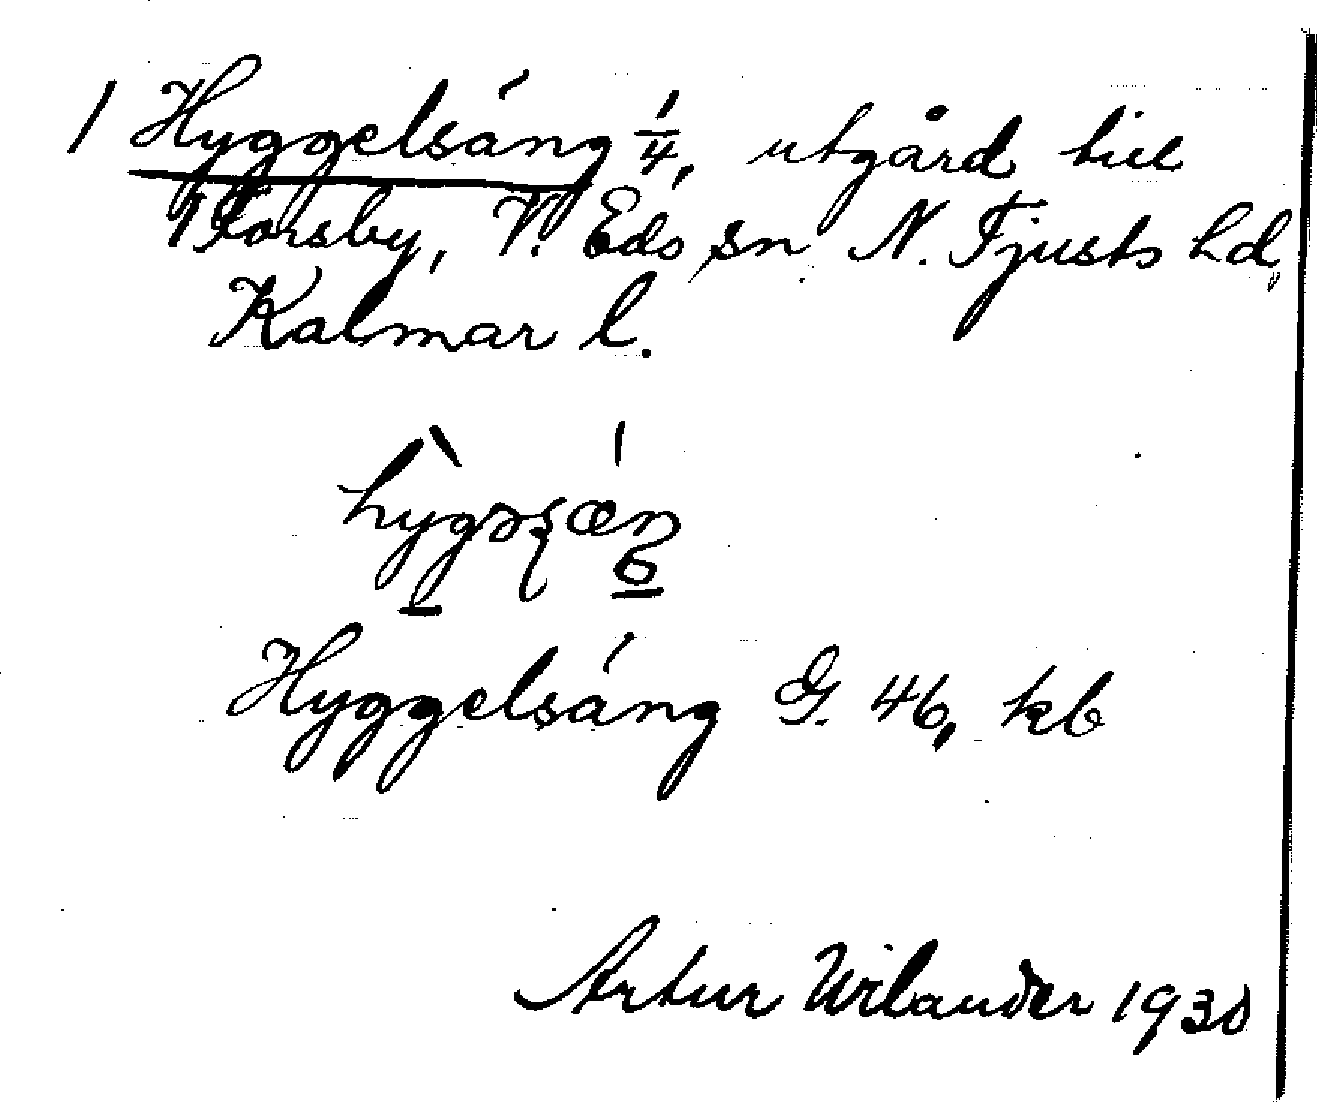 1 Hyggelsáng 1/4, utgård till
1 Forsby, V. Eds sn N. Tjusts hd,
Kalmar l.
Hyggelsáng G. 46, kb
Artur Wilander 1930